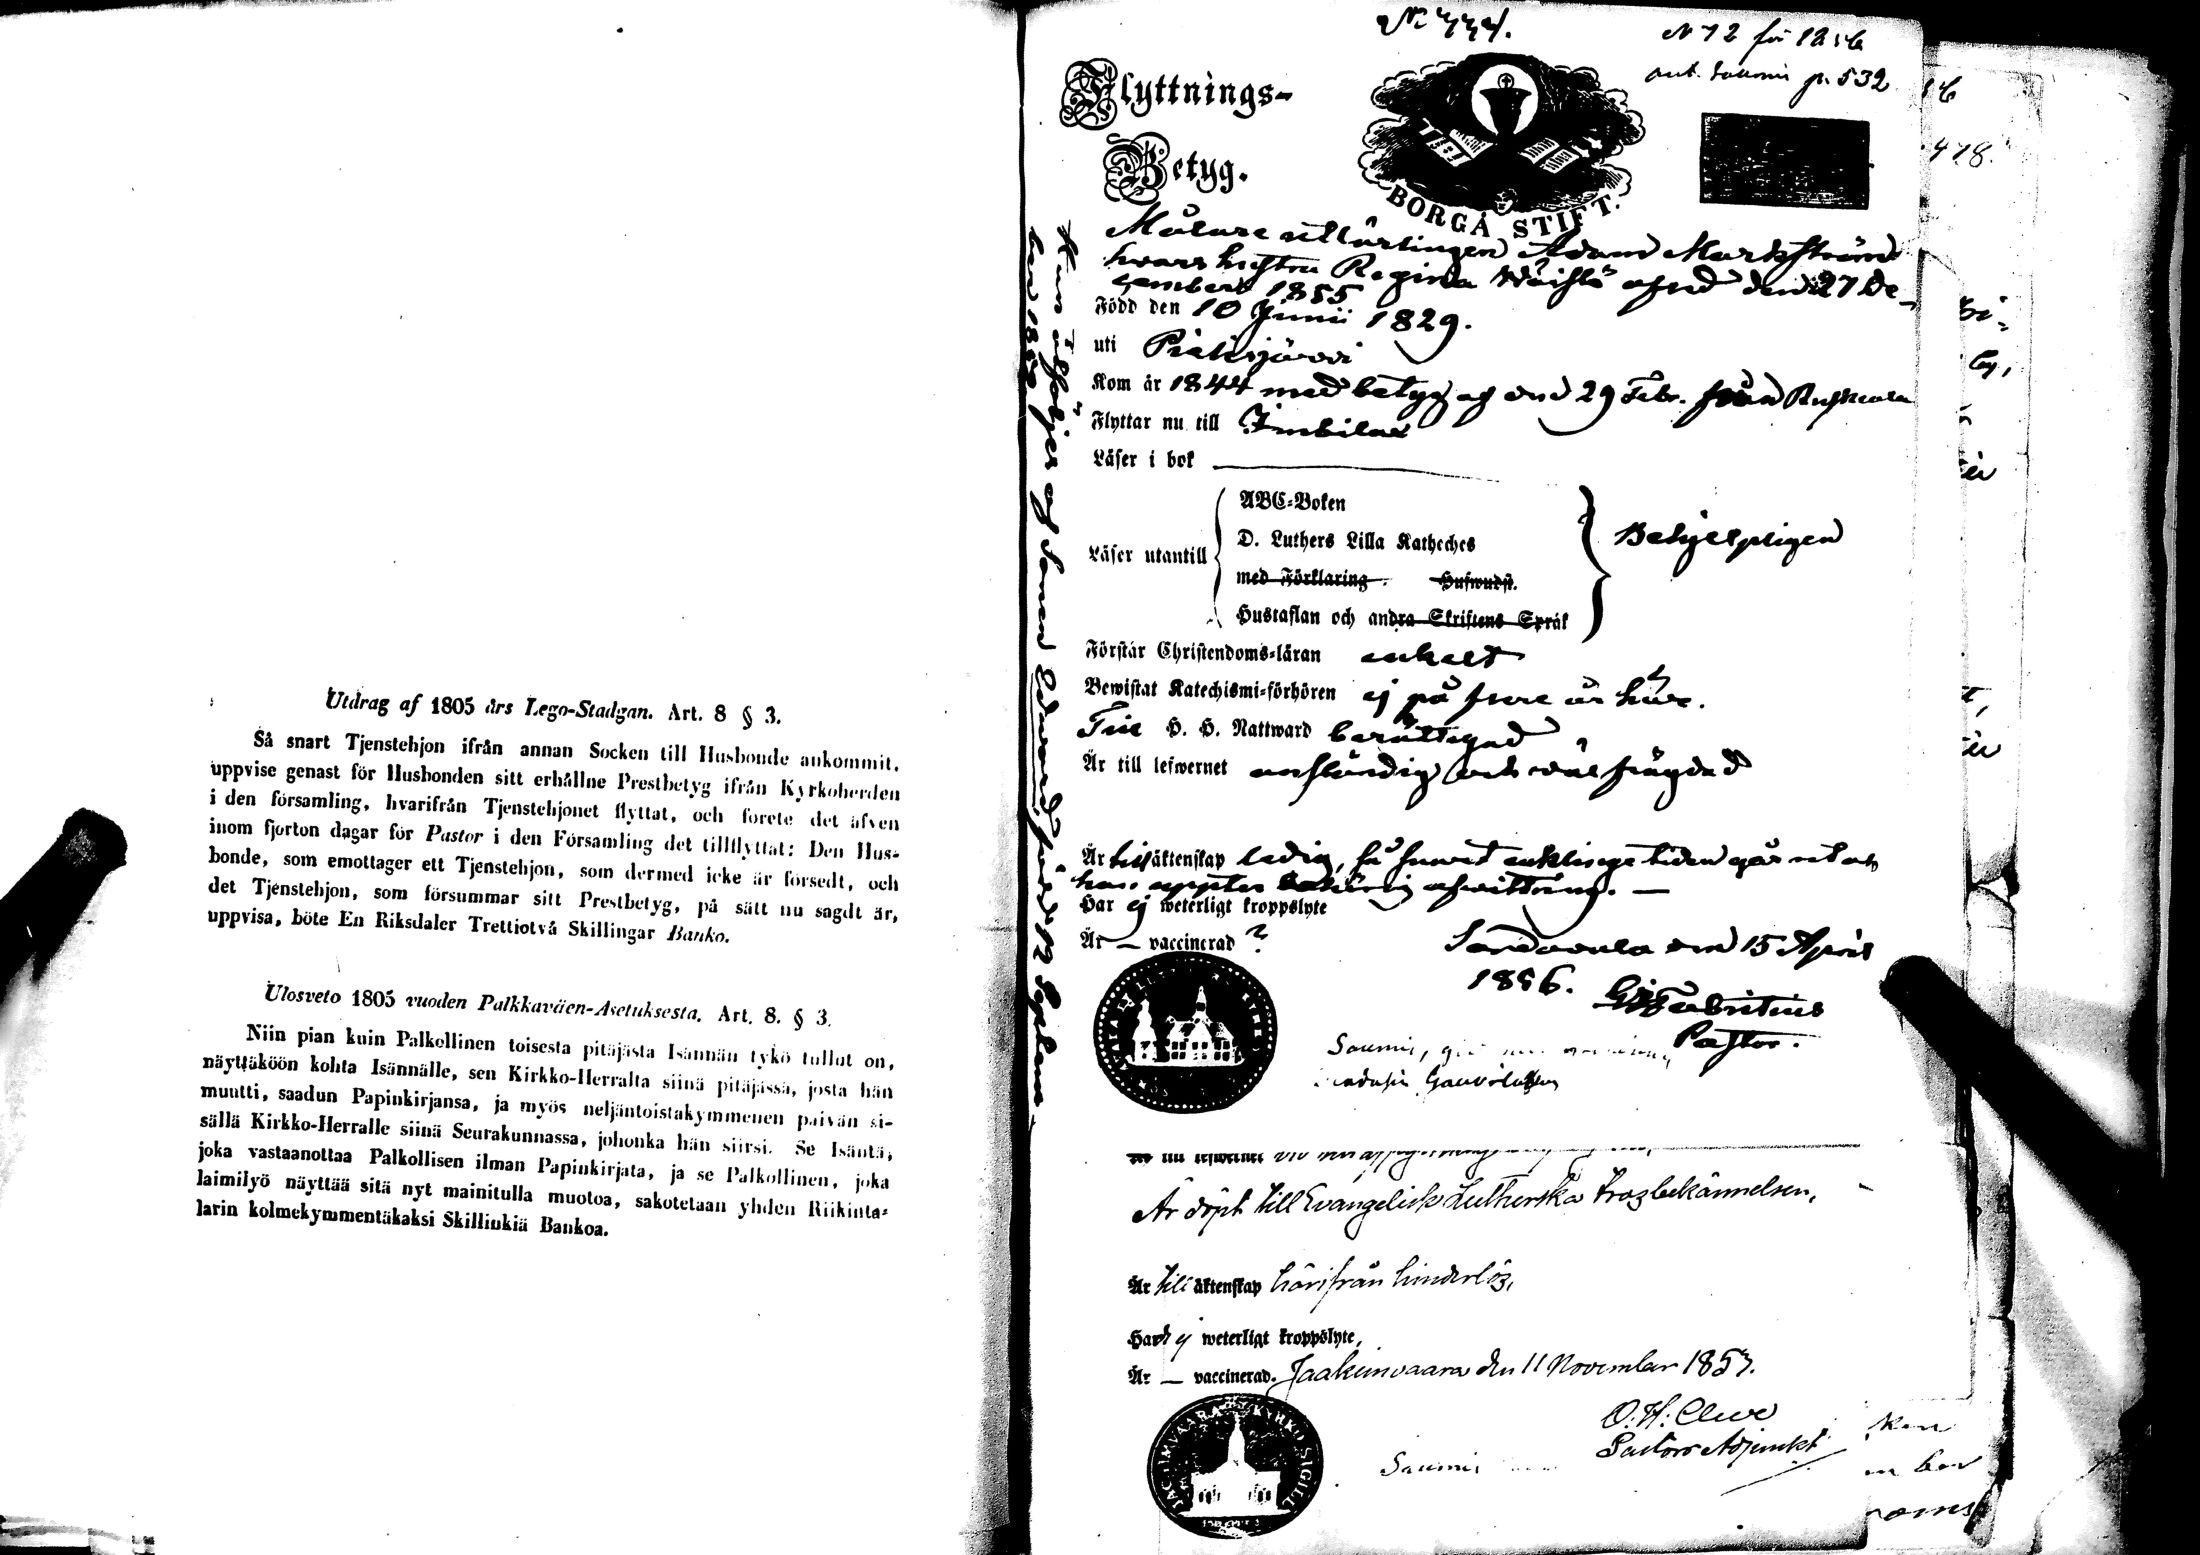 Utdrag af 1805 års Lego-Stadgan. Art. 8 § 3.
Så snart Tjenstehjon ifrån annan Socken till Husbonde ankommit,
uppvise genast för Husbonden sitt erhållne Prestbetyg ifrån Kyrkoherden
i den församling, hvarifrån Tjenstehjonet flyttat, och förete det äfven
inom fjorton dagar för Pastor i den Församling det tillflyttat: Den Hus-
bonde, som emottager ett Tjenstehjon, som dermed icke är försedt, och
det Tjenstehjon, som försummar sitt Prestbetyg, på sätt nu sagdt är,
uppvisa, böte En Riksdaler Trettiotvå Skillingar Banko.
Ulosveto 1805 vuoden Palkkaväen-Asetuksesta. Art. 8. § 3.
Niin pian kuin Palkollinen toisesta pitäjästä Isännän tykö tullut on,
näyttäköön kohta Isännälle, sen Kirkko-Herralta siinä pitäjässä, josta hän
muutti, saadun Papinkirjansa, ja myös neljäntoistakymmenen päivän si-
sällä Kirkko-Herralle siinä Seurakunnassa, johonka hän siirsi. Se Isäntä,
joka vastaanottaa Palkollisen ilman Papinkirjata, ja se Palkollinen, joka
laimilyö näyttää sitä nyt mainitulla muotoa, sakotetaan yhden Riikinta-
larin kolmekymmentäkaksi Skillinkiä Bankoa.
N 12 för 1856
p. 532
Flyttnings-
Betyg.
BORGÅ STIFT.
Målare utlärlingen Adam Markström
hvars hustru Regina afled den 27 De-
cember 1855
Född den 10 Junii 1829.
uti Pielisjärvi
Kom år 1844 med betyg af den 29 Febr. från Ruskeala
Flyttar nu till Imbilax
Läser i bok
Läser utantill
ABC-Boken
D. Luthers Lilla Katheches
med Förklaring. Hufwudst.
Hustaflan och andra Skriftens Språk
Behjelpligen
Förstår Christendoms-läran enkelt
Bewistat Katechismi-förhören ej på flere år här.
Till H. H. Nattward berättigad
Är till lefwernet anständig och väl frägdad
Är till äktenskap ledig, så snart enklingstiden går ut och
han uppter afvittring.
Har ej weterligt kroppslyte
Är — vaccinerad ?
Sordavala den 15 April
1856.
Fabritius
Pastor.
Han åtföljes af Sonen Edvard född 12 Septem-
ber
Är döpt till Evangelisk Lutherska trosbekännelsen,
Är till äktenskap härifrån hinderlös,
Har ej weterligt kroppslyte,
Är — vaccinerad. Jaakimvaara den 11 November 1857.
O. H. Cleve
Pastors Adjunkt
JACKIMVAARA KYRKO SIGILL